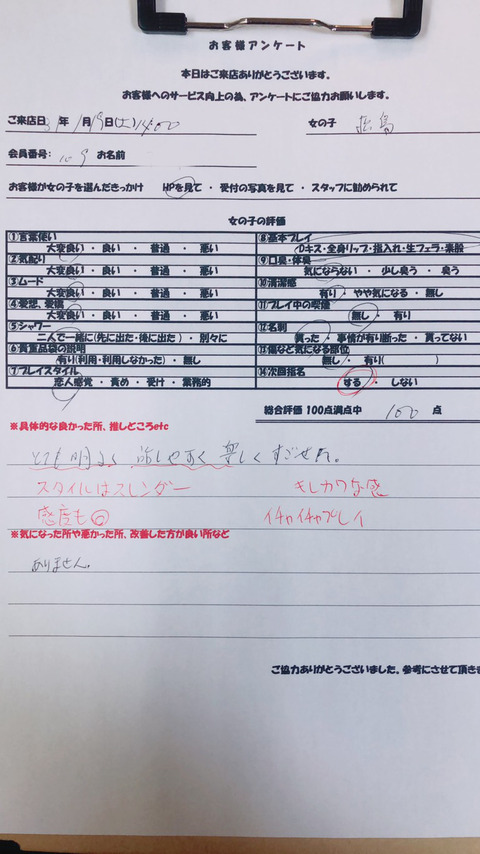 お客様アンケート
本日はご来店ありがとうございます。
お客様へのサービス向上の為、アンケートにご協力お願いします。
ご来店日 31年 1月19日(土) 14:00 女の子
会員番号: 109 お名前
お客様が女の子を選んだきっかけ HPを見て ・ 受付の写真を見て ・ スタッフに勧められて
女の子の評価
①言葉使い
大変良い ・ 良い ・ 普通 ・ 悪い
②気配り
大変良い ・ 良い ・ 普通 ・ 悪い
③ムード
大変良い ・ 良い ・ 普通 ・ 悪い
④愛想、愛嬌
大変良い ・ 良い ・ 普通 ・ 悪い
⑤シャワー
二人で一緒に(先に出た・後に出た) ・ 別々に
⑥貴重品袋の説明
有り(利用・利用しなかった) ・ 無し
⑦プレイスタイル
恋人感覚 ・ 責め ・ 受け ・ 業務的
⑧基本プレイ
Dキス・全身リップ・指入れ・生フェラ・素股
⑨口臭・体臭
気にならない ・ 少し臭う ・ 臭う
⑩清潔感
有り ・ やや気になる ・ 無し
⑪プレイ中の喫煙
無し ・ 有り
⑫名刺
貰った ・ 事情が有り断った ・ 貰ってない
⑬傷など気になる部位
無し ・ 有り( )
⑭次回指名
する ・ しない
総合評価 100点満点中 100 点
※具体的な良かった所、推しどころetc
とても明るく 話しやすく 楽しくすごせた。
スタイルはスレンダー キレカワな感
感度も◎ イチャイチャプレイ
※気になった所や悪かった所、改善した方が良い所など
ありません。
ご協力ありがとうございました、参考にさせて頂きま